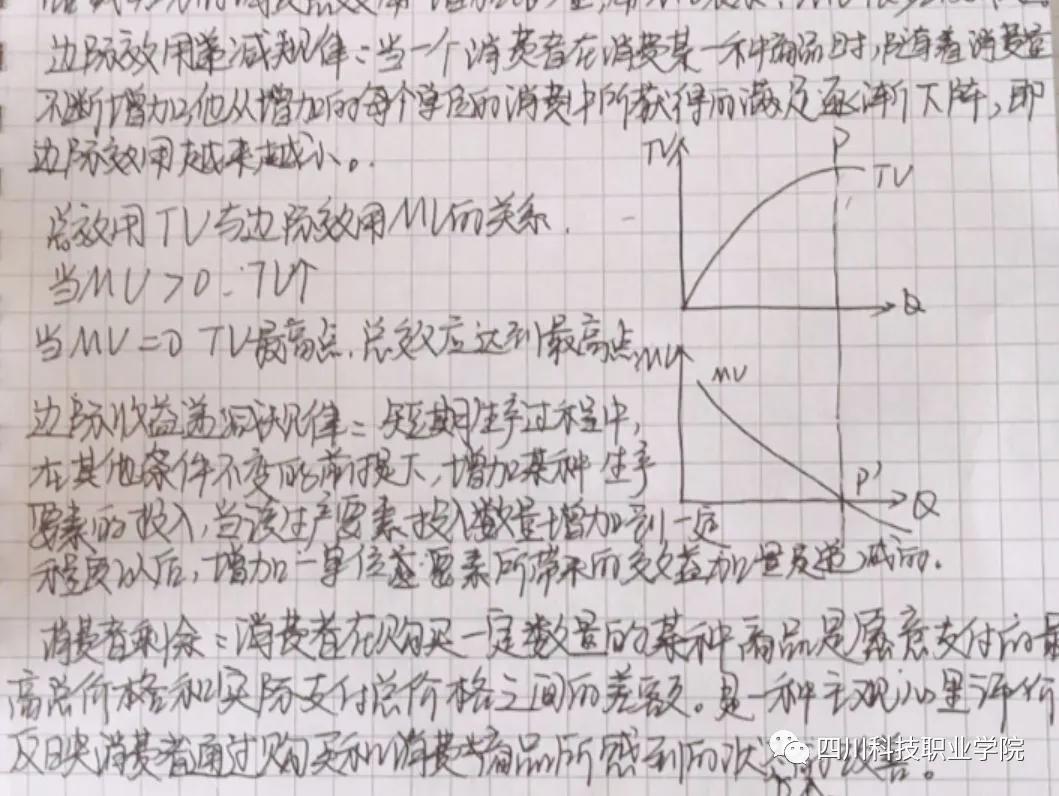 边际效用递减规律：当一个消费者在消费某一种商品时，随着消费量
不断增加，他从增加的每个单位的消费中所获得的满足逐渐下降，即
边际效用越来越小。
TU
P
TU
Q
总效用TU与边际效用MU的关系.
当MU>0：TU↑
当MU=0 TU最高点，总效应达到最高点
MU
MU
P'
Q
边际收益递减规律：短期生产过程中，
在其他条件不变的前提下，增加某种生产
要素的投入，当该生产要素投入数量增加到一定
程度以后，增加一单位该要素所带来的效益加量是递减的.
消费者剩余：消费者在购买一定数量的某种商品是愿意支付的最
高总价格和实际支付总价格之间的差额。是一种主观心里评价
反映消费者通过购买和消费商品所感到的状 改善。
四川科技职业学院